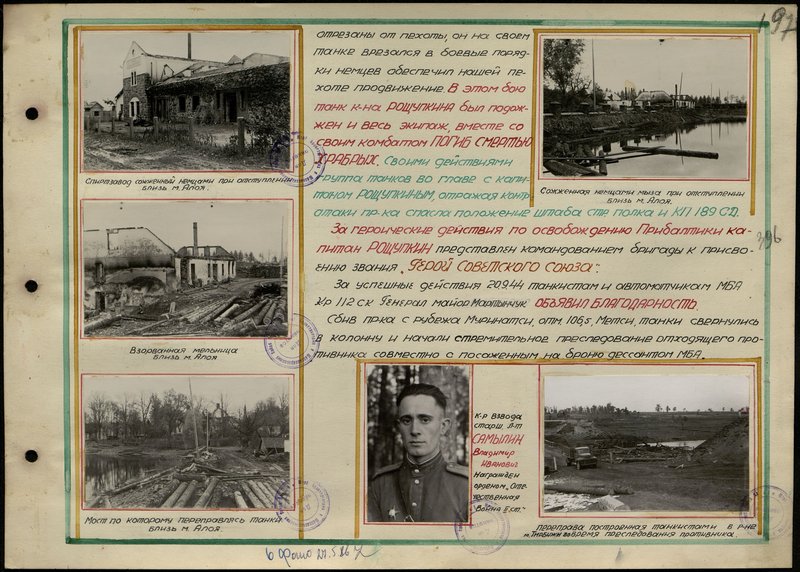 197
отрезаны от пехоты, он на своем
танке врезался в боевые поряд-
ки немцев обеспечил нашей пе-
хоте продвижение. В этом бою
танк к-на РОЩУПКИНА был подож-
жен и весь экипаж, вместе со
своим комбатом ПОГИБ СМЕРТЬЮ
ХРАБРЫХ. Своими действиями
группа танков во главе с капи-
таном РОЩУПКИНЫМ, отражая контр
атаки пр-ка спасла положение штаба стр. полка и КП 189 С.Д.
За героические действия по освобождению Прибалтики ка-
питан РОЩУПКИН представлен командованием бригады к присво-
ению звания „ГЕРОЙ СОВЕТСКОГО СОЮЗА".
За успешные действия 20.9.44 танкистам и автоматчикам МБА
К-р 112 СК Генерал майор Мартынчук ОБЪЯВИЛ БЛАГОДАРНОСТЬ.
Сбив пр-ка с рубежа Муринатси, отм. 106,5, Метси, танки свернулись
в колонну и начали стремительное преследование отходящего про-
тивника совместно с посаженным на броню дессантом МБА.
Спиртзавод сожженый немцами при отступлении
близь м. Алоя.
Взорванная мельница
близь м. Алоя
Мост по которому переправлясь танки
близь м. Алоя.
Сожженная немцами мыза при отступлении
близь м. Алоя.
396
К-р Взвода
старш. л-т
САМЫЛИН
Владимир
Иванович
Награжден
орденом „Оте-
чественная
Война II ст."
Переправа построенная танкистами в р-не
во время преследования противника.
6 фото